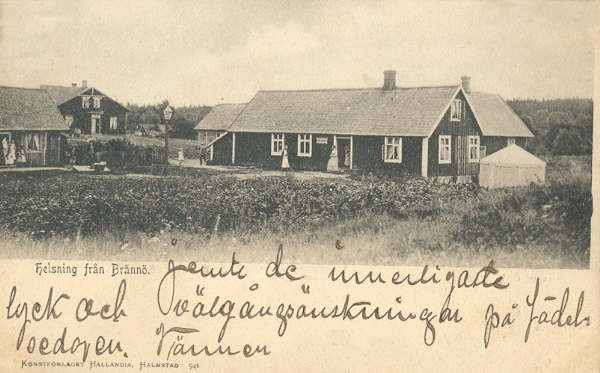 Helsning från Brännö.
Jemte de innerligaste
lyck och välgångsönskningar på Födel-
sedagen. Vännen
KONSTFÖRLAGET HALLANDIA, HALMSTAD